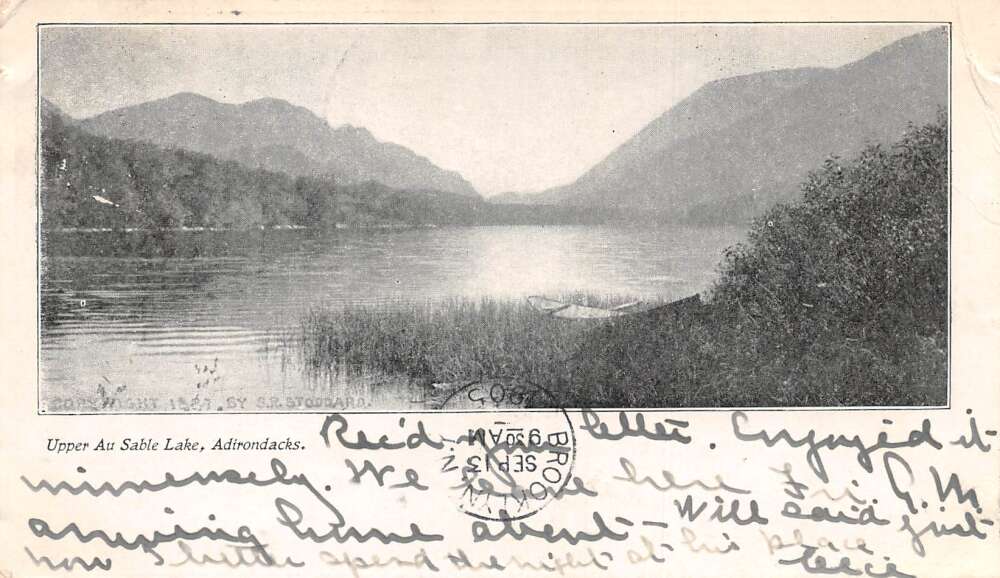 COPYRIGHT 1887, BY S.R. STODDARD.
Upper Au Sable Lake, Adirondacks.
Rec'd your letter. Enjoyed it
immensely. We leave here Fri. A.M.
arriving home about — Will said just
now I better spend the night at his place
BROOKLYN, N.
SEP 13
9 30 AM
1905